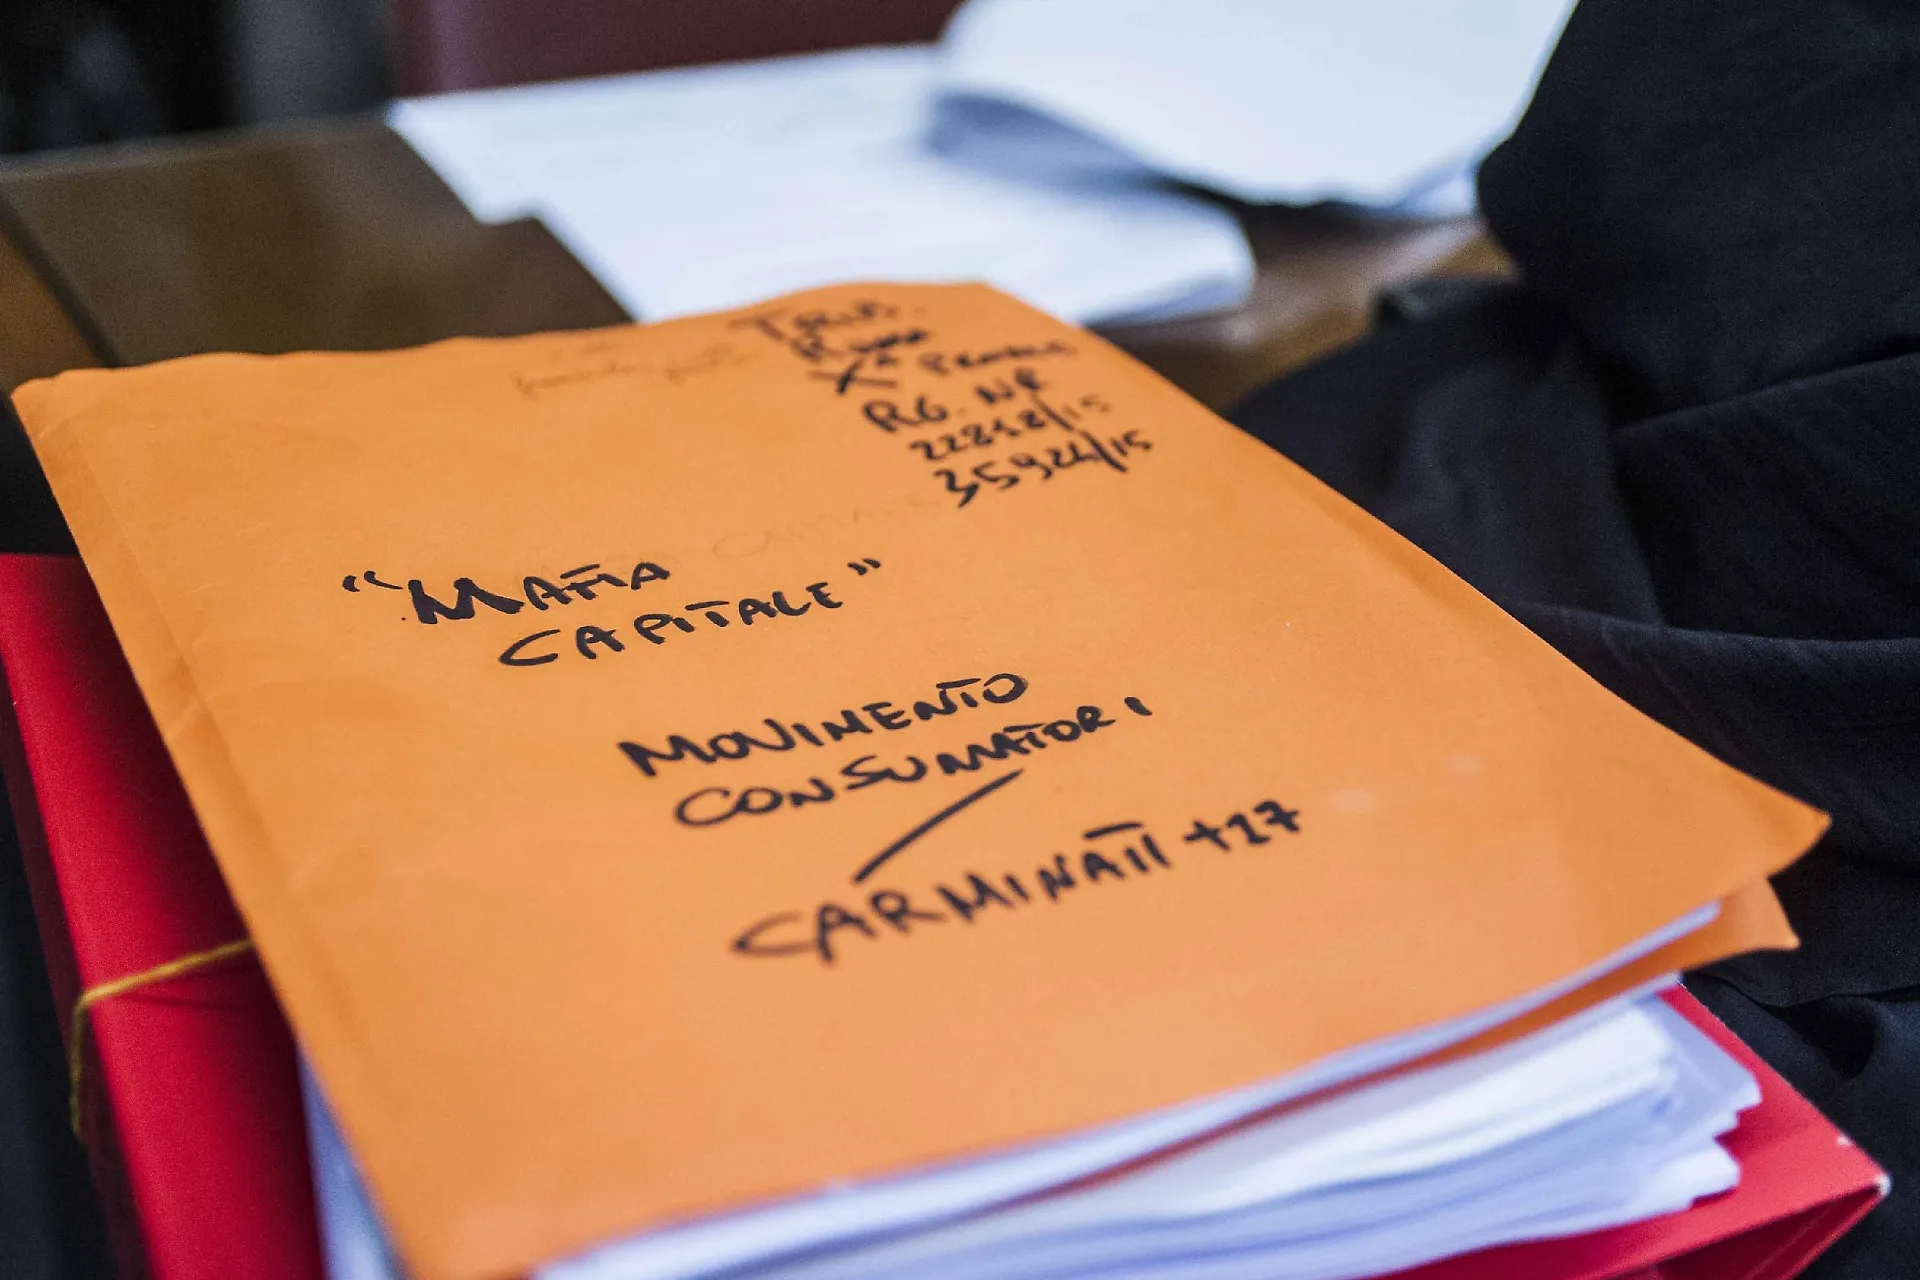 TRIB.
ROMA
Xª PENALE
RG. NR
22818/15
35924/15
"MAFIA
CAPITALE"
MOVIMENTO
CONSUMATORI
/
CARMINATI +27